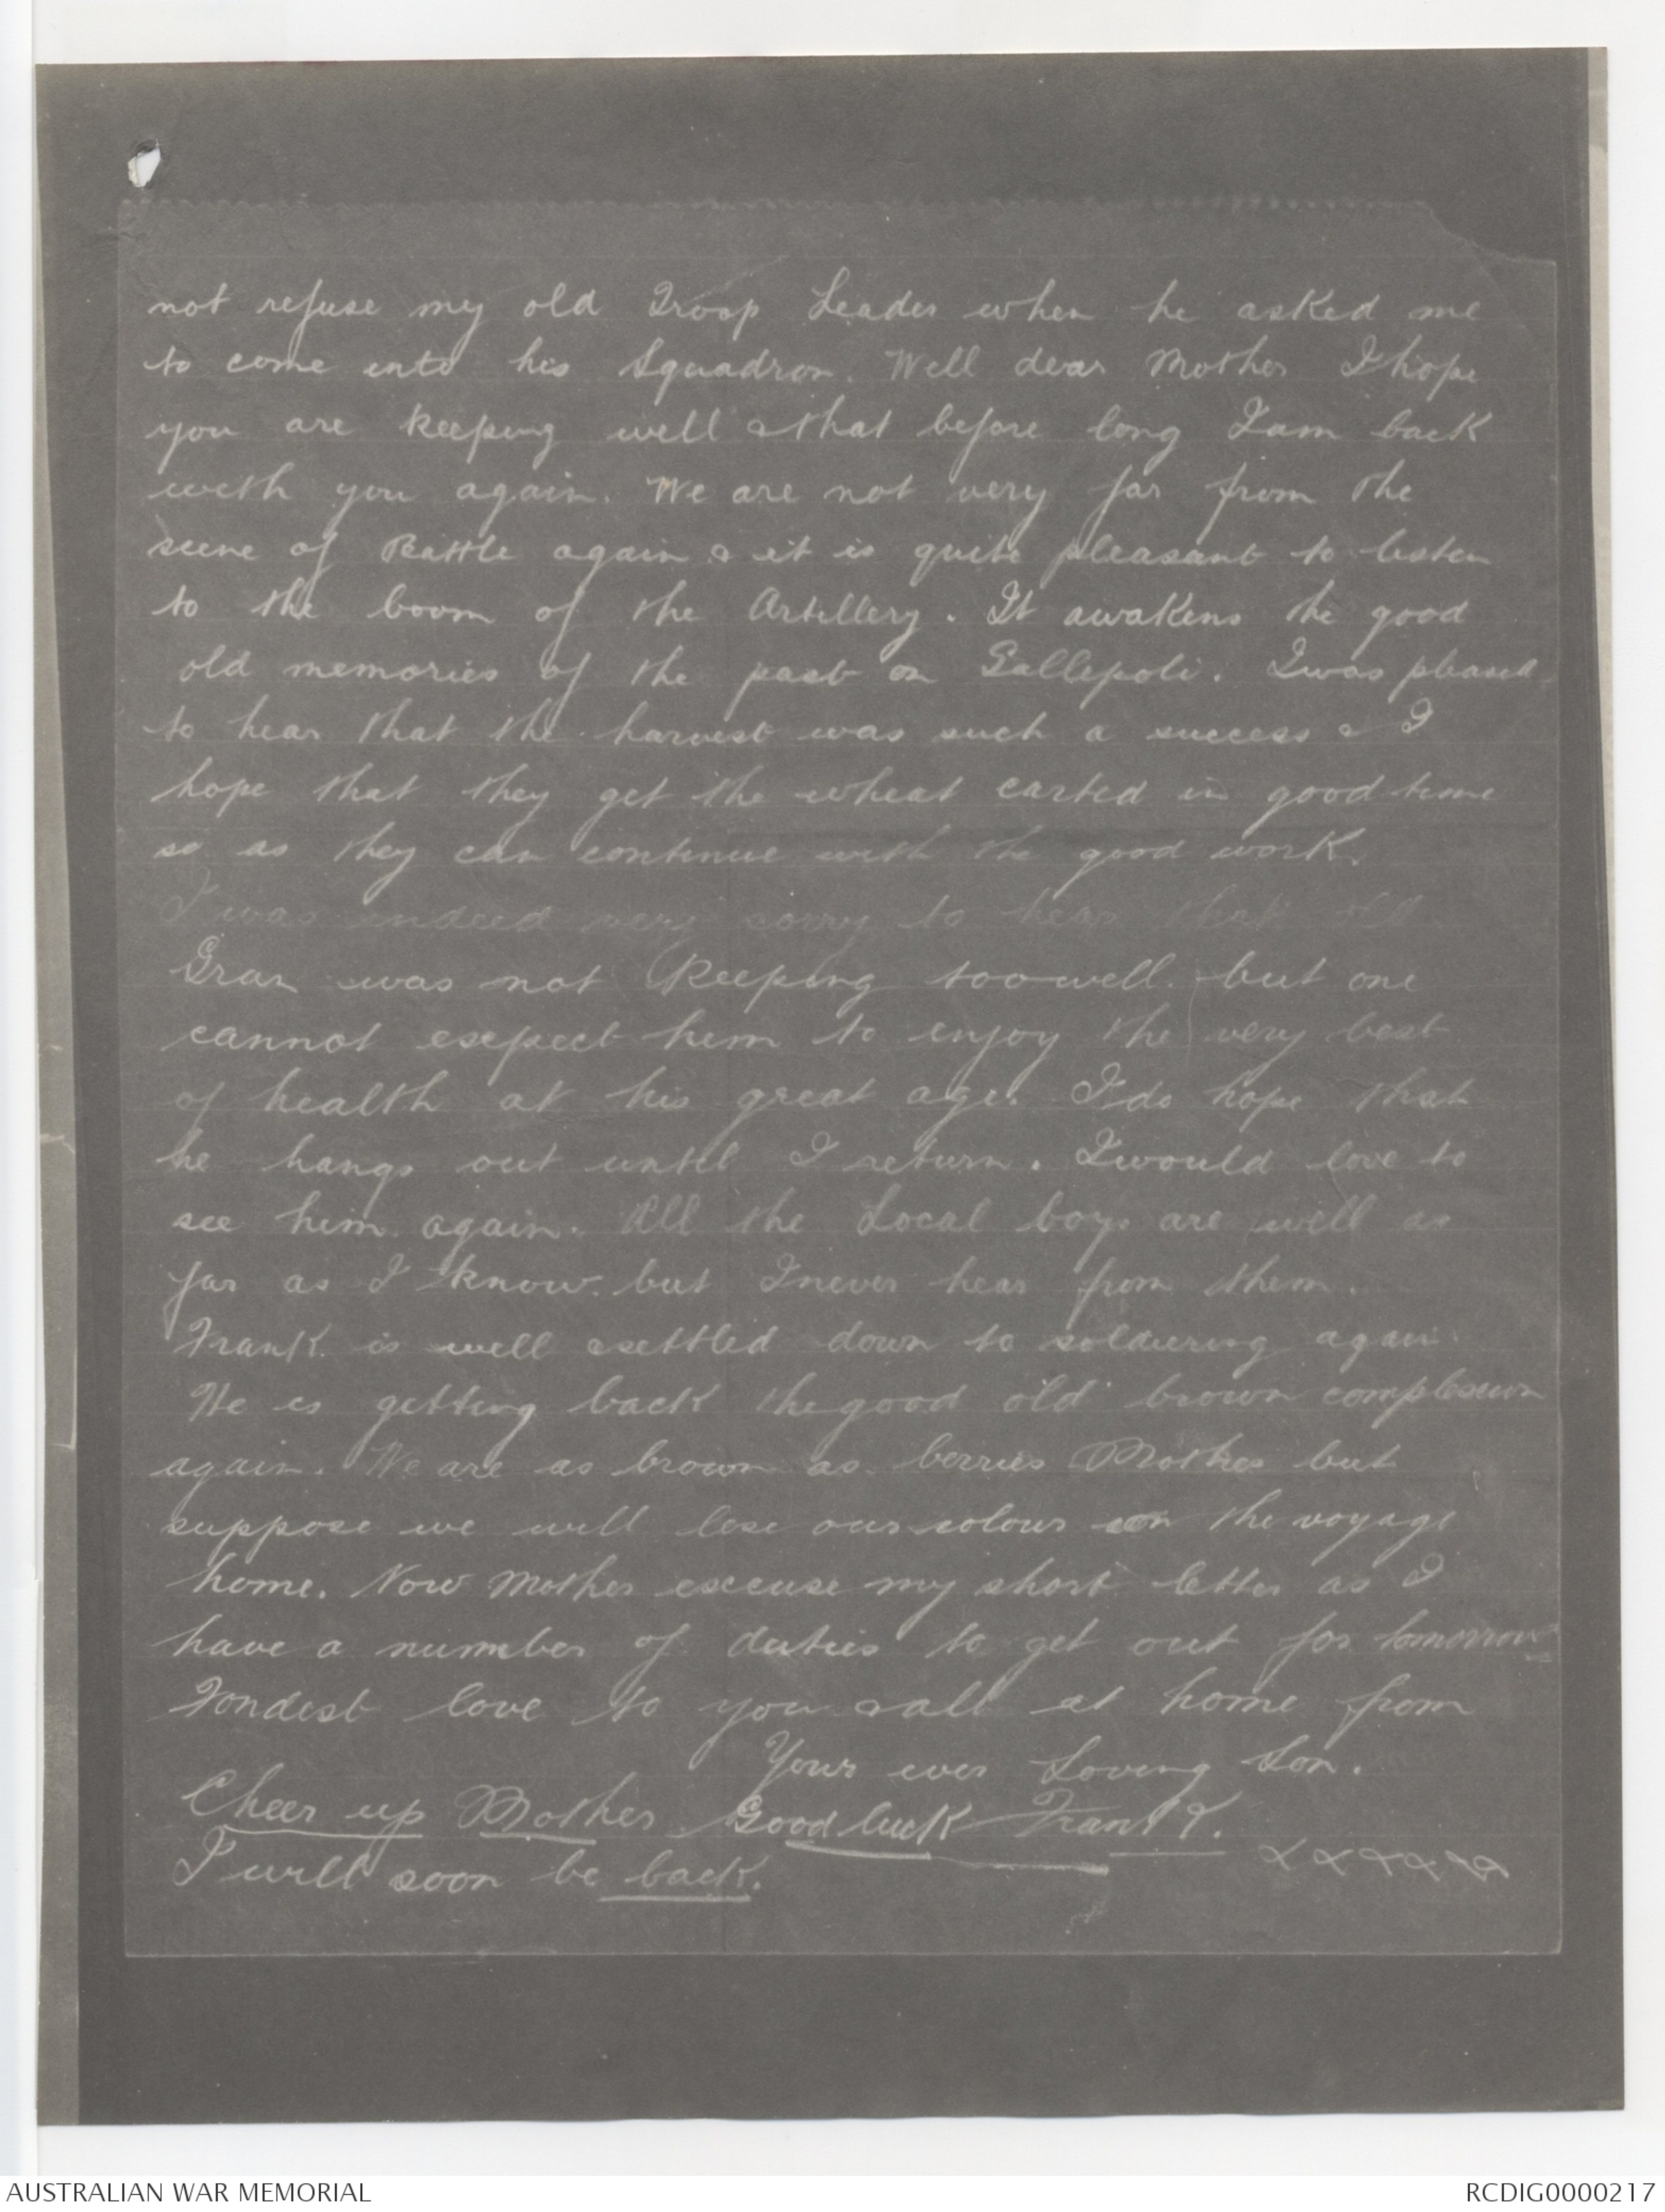 not refuse my old Troop Leader when he asked me
to come into his Squadron. Well dear Mother I hope
you are keeping well & that before long I am back
with you again. We are not very far from the
scene of Battle again & it is quite pleasant to listen
to the boom of the Artillery. It awakens the good
old memories of the past on Gallepoli. I was pleased
to hear that the harvest was such a success & I
hope that they get the wheat carted in good time
so as they can continue with the good work.
I was indeed very sorry to hear that old
Gran was not keeping too well. but one
cannot expect him to enjoy the very best
of health at his great age. I do hope that
he hangs out until I return. I would love to
see him again. All the Local boys are well as
far as I know. but I never hear from them.
Frank is well & settled down to soldiering again
He is getting back the good old brown complexion
again. We are as brown as berries Mother but
suppose we will lose our colour on the voyage
home. Now Mother excuse my short letter as I
have a number of duties to get out for tomorrow
Fondest love to you & all at home from
Your ever Loving Son.
Cheer up Mother. Good luck Frank.
I will soon be back. xxxxxx
AUSTRALIAN WAR MEMORIAL
RCDIG0000217